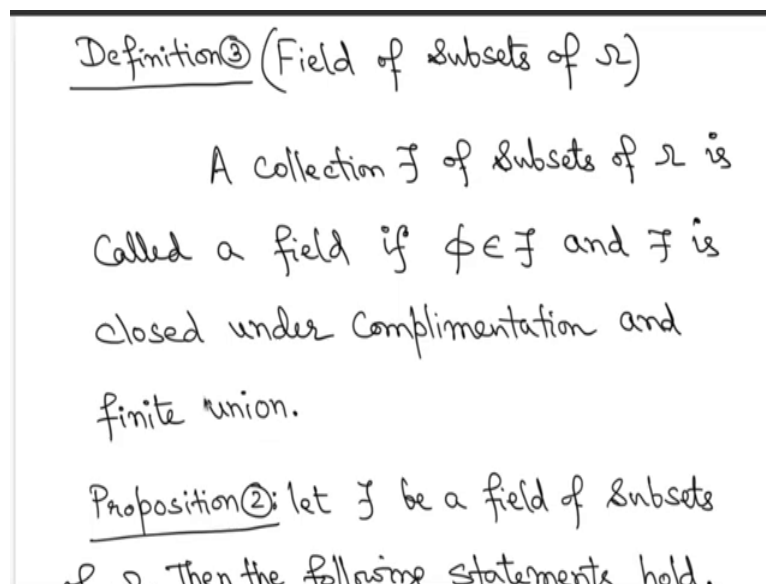 Definition③ (Field of subsets of Ω)
A collection Ƒ of subsets of Ω is
called a field if ϕ ∈ Ƒ and Ƒ is
closed under complimentation and
finite union.
Proposition②: let Ƒ be a field of subsets
of Ω. Then the following statements hold.